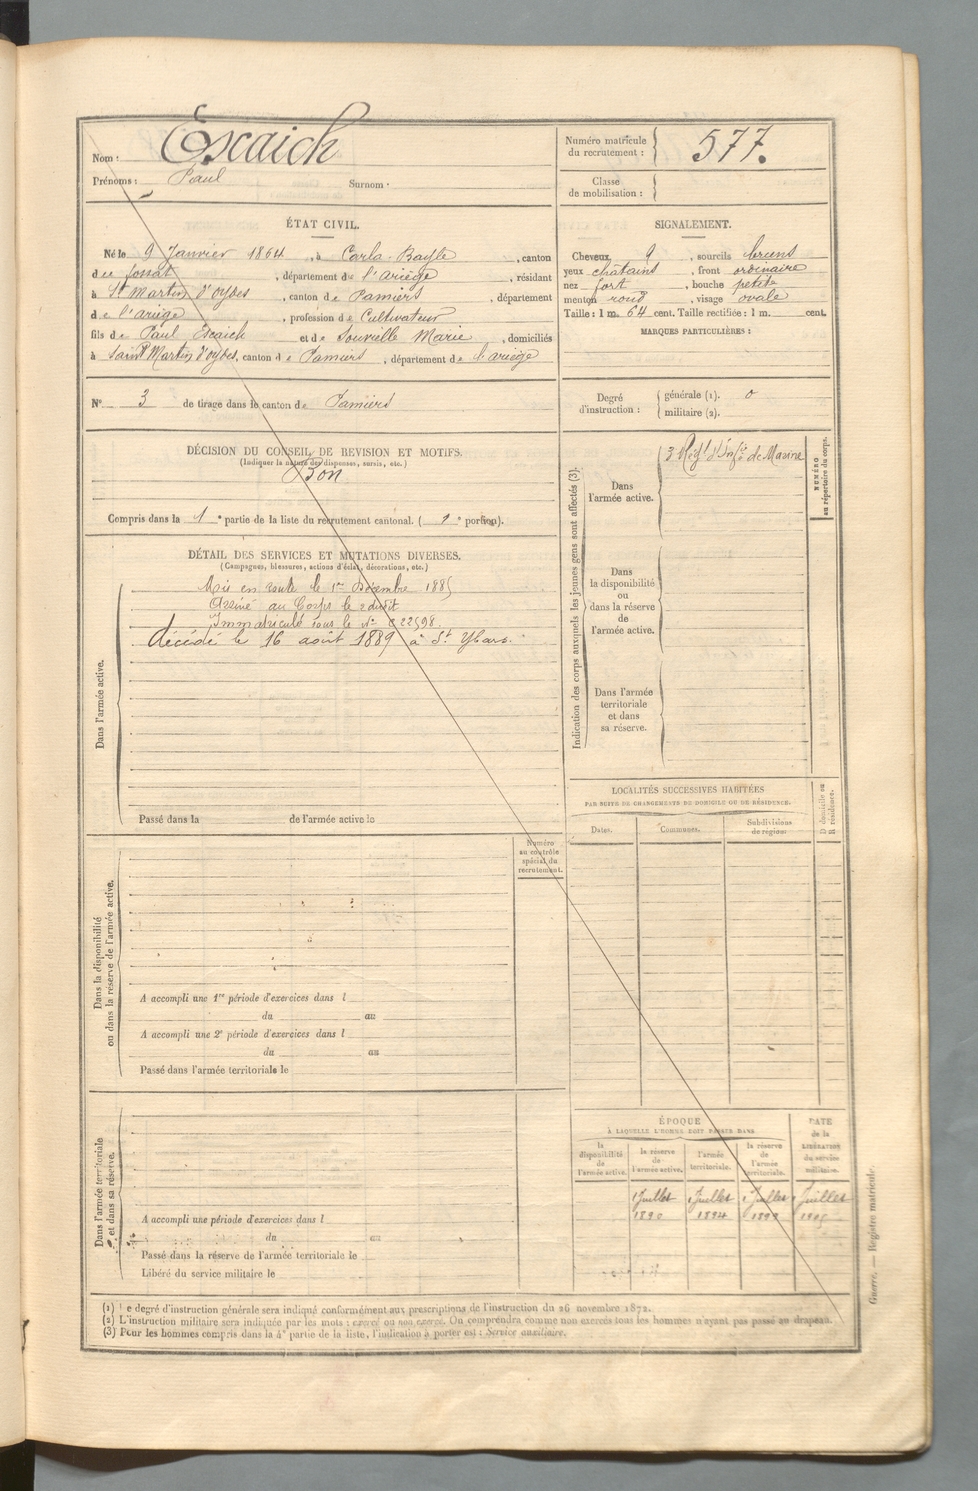 Nom : Escaich
Prénoms : Paul Surnom :
Numéro matricule du recrutement : 577.
Classe de mobilisation :
ÉTAT CIVIL.
Né le 9 Janvier 1864, à Carla-Bayle, canton
de fossat, département de l'ariège, résidant
à St Martin d'oydes, canton de Pamiers, département
de l'ariège, profession de Cultivateur
fils de Paul Escaich et de Souville Marie, domiciliés
à Saint Martin d'oydes, canton de Pamiers, département de l'ariège
SIGNALEMENT.
Cheveux, sourcils bruns
yeux châtains, front ordinaire
nez fort, bouche petite
menton rond, visage ovale
Taille : 1 m. 64 cent. Taille rectifiée : 1 m. cent.
MARQUES PARTICULIÈRES :
N° 3 de tirage dans le canton de Pamiers
Degré d'instruction : générale (1). 0
militaire (2).
DÉCISION DU CONSEIL DE REVISION ET MOTIFS.
(Indiquer la nature des dispenses, sursis, etc.)
Bon
Compris dans la 1e partie de la liste du recrutement cantonal. (1e portion).
DÉTAIL DES SERVICES ET MUTATIONS DIVERSES.
(Campagnes, blessures, actions d'éclat, décorations, etc.)
Dans l'armée active.
Mis en route le 1er Décembre 1885
Arrivé au Corps le 2 dudit
Immatriculé sous le N° 22598.
décédé le 16 août 1889 à St Ybars.
Passé dans la de l'armée active le
Indication des corps auxquels les jeunes gens sont affectés (3).
Dans l'armée active.
3 Régt d'Infie de Marine
NUMÉRO au répertoire du corps.
Dans la disponibilité ou dans la réserve de l'armée active.
Dans l'armée territoriale et dans sa réserve.
LOCALITÉS SUCCESSIVES HABITÉES
PAR SUITE DE CHANGEMENTS DE DOMICILE OU DE RÉSIDENCE.
Dates. Communes. Subdivisions de région.
D domicile ou R résidence.
Numéro au contrôle spécial du recrutement.
Dans la disponibilité ou dans la réserve de l'armée active.
A accompli une 1re période d'exercices dans l
du au
A accompli une 2e période d'exercices dans l
du au
Passé dans l'armée territoriale le
Dans l'armée territoriale et dans sa réserve.
A accompli une période d'exercices dans l
du au
Passé dans la réserve de l'armée territoriale le
Libéré du service militaire le
ÉPOQUE
À LAQUELLE L'HOMME DOIT PASSER DANS
la disponibilité de l'armée active.
la réserve de l'armée active.
l'armée territoriale.
la réserve de l'armée territoriale.
DATE de la LIBÉRATION du service militaire.
1 Juillet 1 Juillet 1 Juillet 1 Juillet
1890 1894 1899
(1) Le degré d'instruction générale sera indiqué conformément aux prescriptions de l'instruction du 26 novembre 1872.
(2) L'instruction militaire sera indiquée par les mots : exercé ou non exercé. On comprendra comme non exercés tous les hommes n'ayant pas passé au drapeau.
(3) Pour les hommes compris dans la 4e partie de la liste, l'indication à porter est : Service auxiliaire.
Guerre. — Registre matricule.